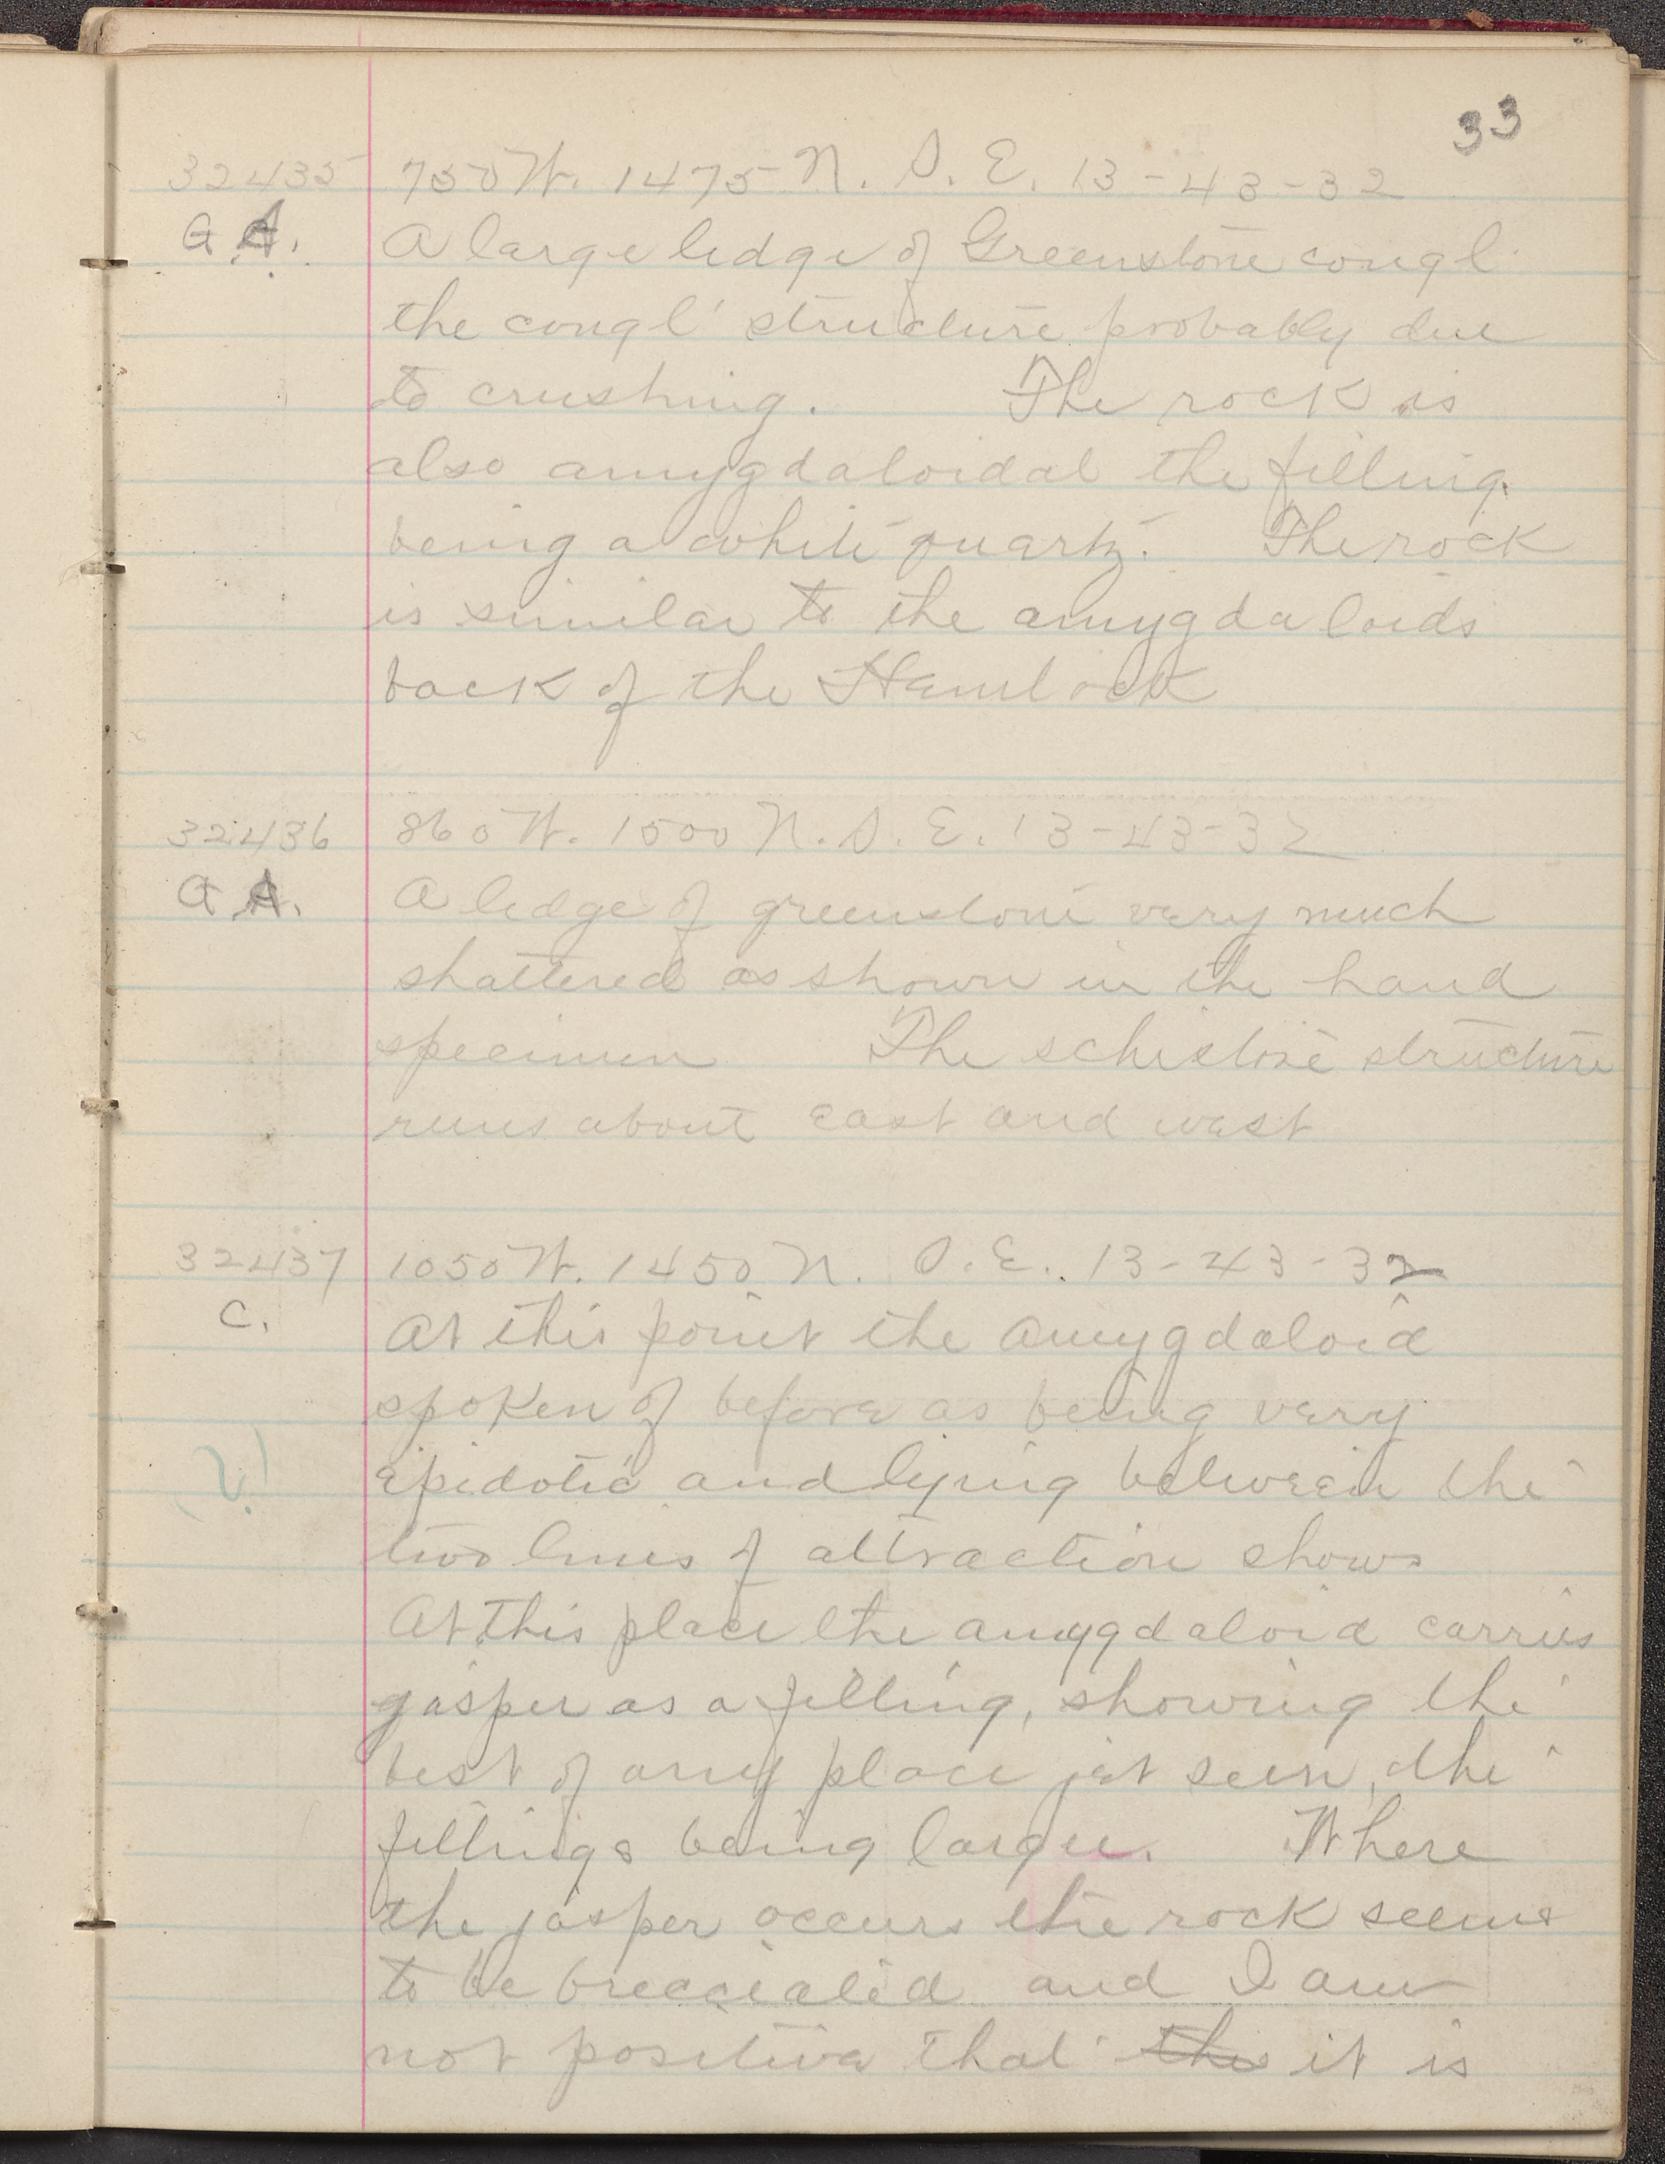 33
32435 750 W. 1475 N. S. E. 13-43-32
G A. A large ledge of Greenstone congl.
the congl' structure probably due
to crushing. The rock is
also amygdaloidal the filling
being a white quartz. The rock
is similar to the amygdaloids
back of the Hemlock
32436 860 W. 1500 N. S. E. 13-43-32
G A. A ledge of greenstone very much
shattered as shown in the hand
specimen The schistose structure
runs about east and west
32437 1050 W. 1450 N. S. E. 13-43-32
C. At this point the amygdaloid
spoken of before as being very
epidotic and lying between the
two lines of attraction shows
At this place the amygdaloid carries
jasper as a filling, showing the
best of any place yet seen, the
fillings being larger. Where
the jasper occurs the rock seems
to be brecciated and I am
not positive that the it is